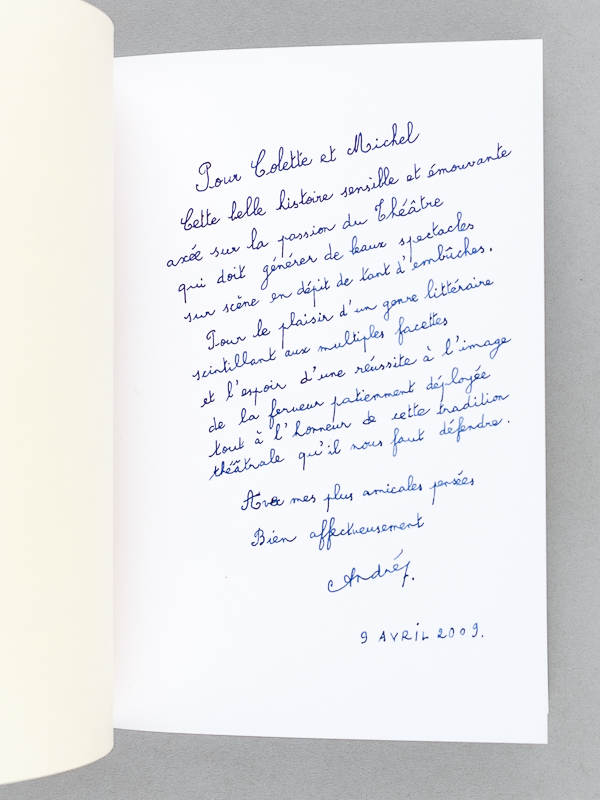 Pour Colette et Michel
Cette belle histoire sensible et émouvante
axée sur la passion du Théâtre
qui doit générer de beaux spectacles
sur scène en dépit de tant d'embûches.
Pour le plaisir d'un genre littéraire
scintillant aux multiples facettes
et l'espoir d'une réussite à l'image
de la ferveur patiemment déployée
tout à l'honneur de cette tradition
théâtrale qu'il nous faut défendre.
Avec mes plus amicales pensées
Bien affectueusement
André
9 AVRIL 2009.